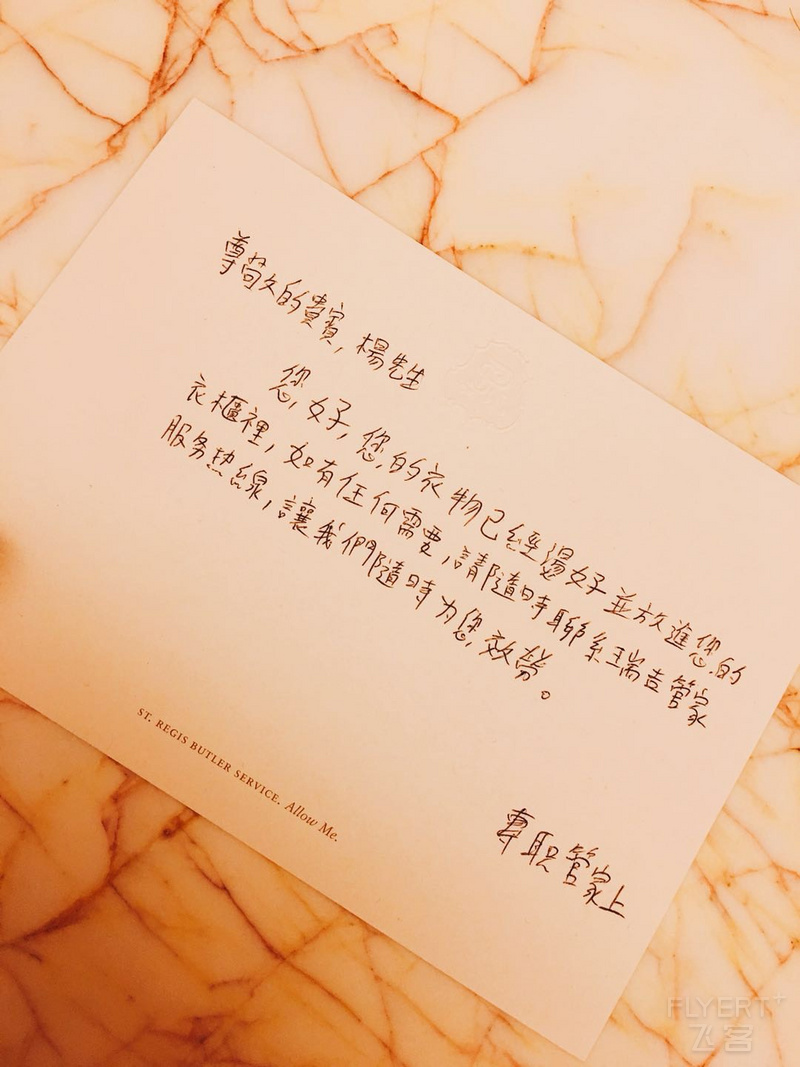 尊敬的貴賓，楊先生
您好，您的衣物已經燙好並放進您的
衣櫃裡，如有任何需要，請隨時聯系瑞吉管家
服务热線，讓我們隨時为您效勞。
專职管家上
ST. REGIS BUTLER SERVICE. Allow Me.
FLYERT+
飞客